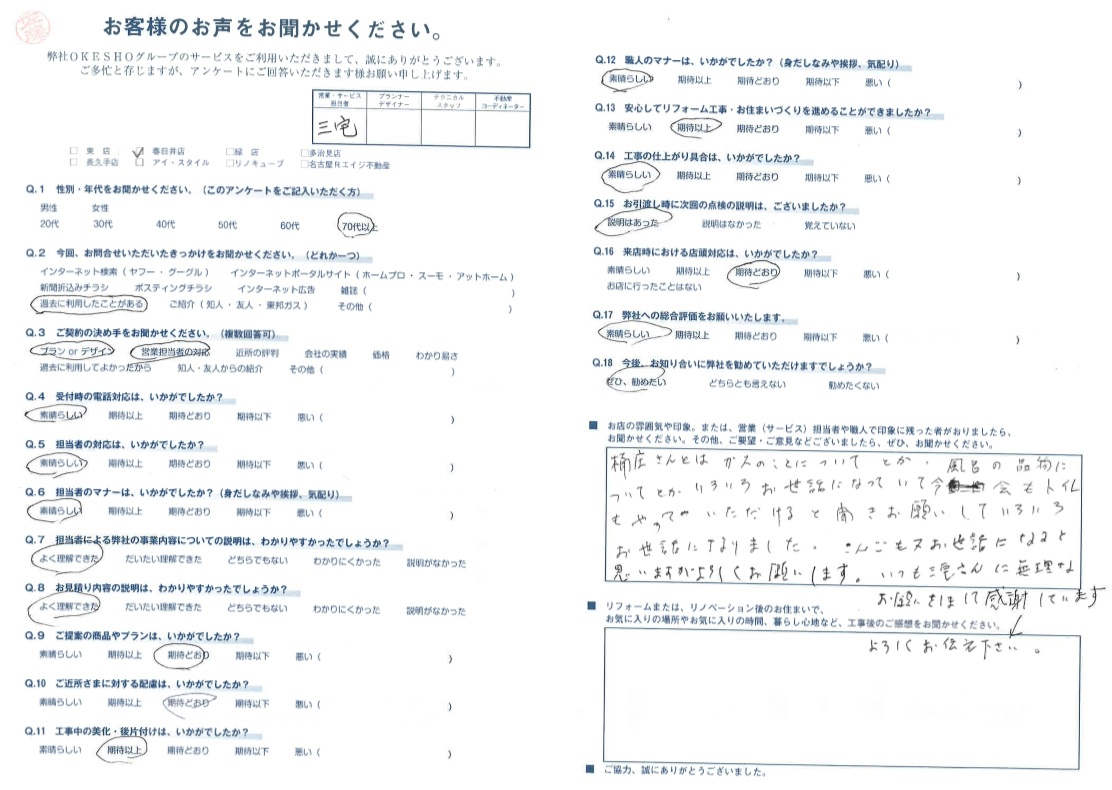 お客様のお声をお聞かせください。
弊社OKESHOグループのサービスをご利用いただきまして、誠にありがとうございます。
ご多忙と存じますが、アンケートにご回答いただきます様お願い申し上げます。
営業・サービス担当者 プランナーデザイナー テクニカルスタッフ 不動産コーディネーター
三宅
□ 東 店 ☑ 春日井店 □緑 店 □多治見店
□ 長久手店 □ アイ・スタイル □リノキューブ □名古屋Rエイジ不動産
Q.1 性別・年代をお聞かせください。(このアンケートをご記入いただく方)
男性 女性
20代 30代 40代 50代 60代 70代以上
Q.2 今回、お問合せいただいたきっかけをお聞かせください。(どれか一つ)
インターネット検索(ヤフー・グーグル) インターネットポータルサイト(ホームプロ・スーモ・アットホーム)
新聞折込みチラシ ポスティングチラシ インターネット広告 雑誌( )
過去に利用したことがある ご紹介(知人・友人・東邦ガス) その他( )
Q.3 ご契約の決め手をお聞かせください。(複数回答可)
プラン or デザイン 営業担当者の対応 近所の評判 会社の実績 価格 わかり易さ
過去に利用してよかったから 知人・友人からの紹介 その他( )
Q.4 受付時の電話対応は、いかがでしたか?
素晴らしい 期待以上 期待どおり 期待以下 悪い( )
Q.5 担当者の対応は、いかがでしたか?
素晴らしい 期待以上 期待どおり 期待以下 悪い( )
Q.6 担当者のマナーは、いかがでしたか?(身だしなみや挨拶、気配り)
素晴らしい 期待以上 期待どおり 期待以下 悪い( )
Q.7 担当者による弊社の事業内容についての説明は、わかりやすかったでしょうか?
よく理解できた だいたい理解できた どちらでもない わかりにくかった 説明がなかった
Q.8 お見積り内容の説明は、わかりやすかったでしょうか?
よく理解できた だいたい理解できた どちらでもない わかりにくかった 説明がなかった
Q.9 ご提案の商品やプランは、いかがでしたか?
素晴らしい 期待以上 期待どおり 期待以下 悪い( )
Q.10 ご近所さまに対する配慮は、いかがでしたか?
素晴らしい 期待以上 期待どおり 期待以下 悪い( )
Q.11 工事中の美化・後片付けは、いかがでしたか?
素晴らしい 期待以上 期待どおり 期待以下 悪い( )
Q.12 職人のマナーは、いかがでしたか?(身だしなみや挨拶、気配り)
素晴らしい 期待以上 期待どおり 期待以下 悪い( )
Q.13 安心してリフォーム工事・お住まいづくりを進めることができましたか?
素晴らしい 期待以上 期待どおり 期待以下 悪い( )
Q.14 工事の仕上がり具合は、いかがでしたか?
素晴らしい 期待以上 期待どおり 期待以下 悪い( )
Q.15 お引渡し時に次回の点検の説明は、ございましたか?
説明はあった 説明はなかった 覚えていない
Q.16 来店時における店頭対応は、いかがでしたか?
素晴らしい 期待以上 期待どおり 期待以下 悪い( )
お店に行ったことはない
Q.17 弊社への総合評価をお願いいたします。
素晴らしい 期待以上 期待どおり 期待以下 悪い( )
Q.18 今後、お知り合いに弊社を勧めていただけますでしょうか?
ぜひ、勧めたい どちらとも言えない 勧めたくない
■ お店の雰囲気や印象。または、営業(サービス)担当者や職人で印象に残った者がおりましたら、
お聞かせください。その他、ご要望・ご意見などございましたら、ぜひ、お聞かせください。
桶庄さんとは ガスのことについて とか、風呂の品物に
ついてとか いろいろお世話になっていて今会もトイレ
もやっていただけると聞きお願いしていろいろ
お世話になりました。こんごも又お世話になると
思いますがよろしくお願いします。いつも三宅さんに無理な
お願いをして感謝しています
■ リフォームまたは、リノベーション後のお住まいで、
お気に入りの場所やお気に入りの時間、暮らし心地など、工事後のご感想をお聞かせください。
よろしくお伝え下さい。
■ ご協力、誠にありがとうございました。